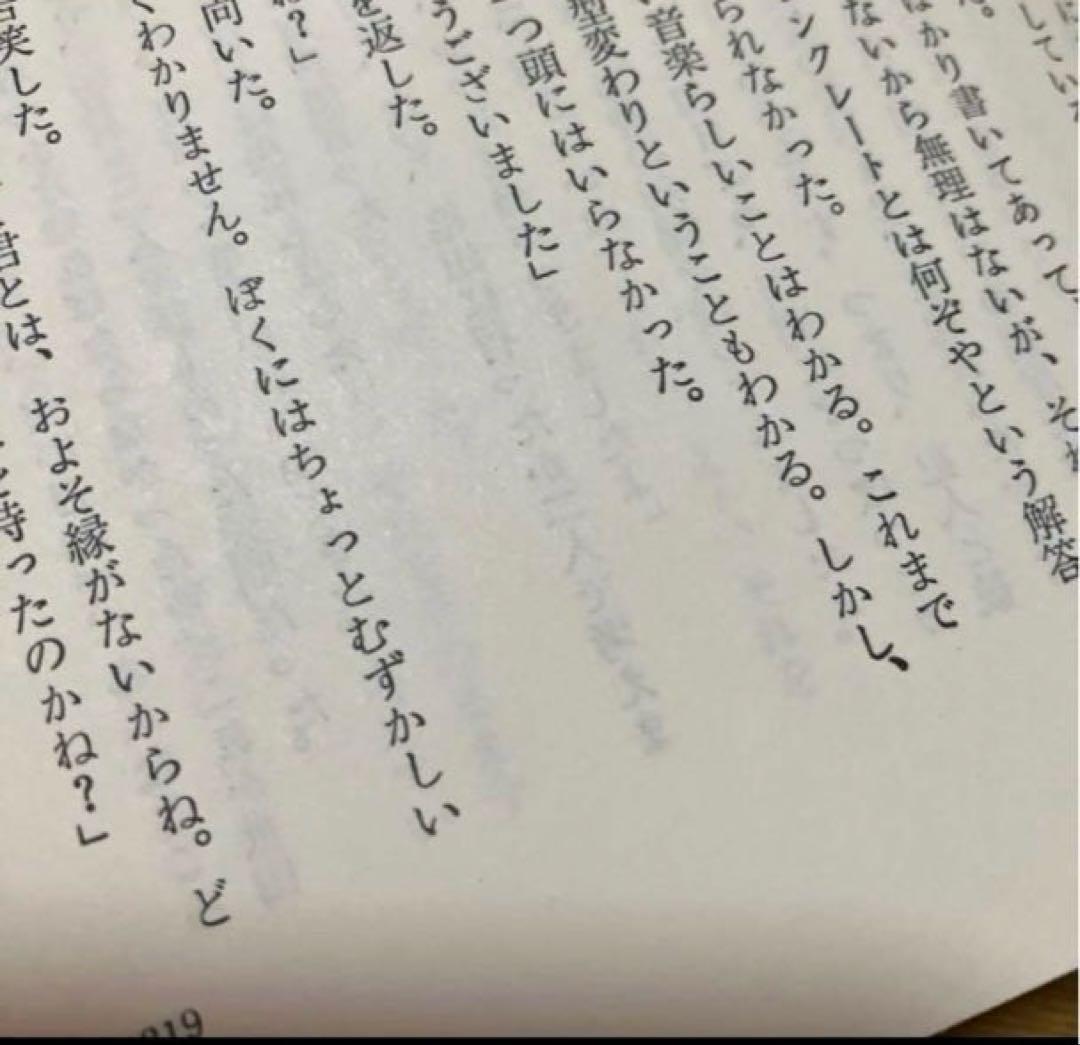 していた
ばかり書いてあって、
ないから無理はないが、それ
ンクレートとは何ぞやという解答
られなかった。
音楽らしいことはわかる。これまで
型変わりということもわかる。しかし、
つ頭にはいらなかった。
うございました」
を返した。
ね?」
向いた。
くわかりません。ぼくにはちょっとむずかしい
苦笑した。
君とは、およそ縁がないからね。ど
と待ったのかね?」
919